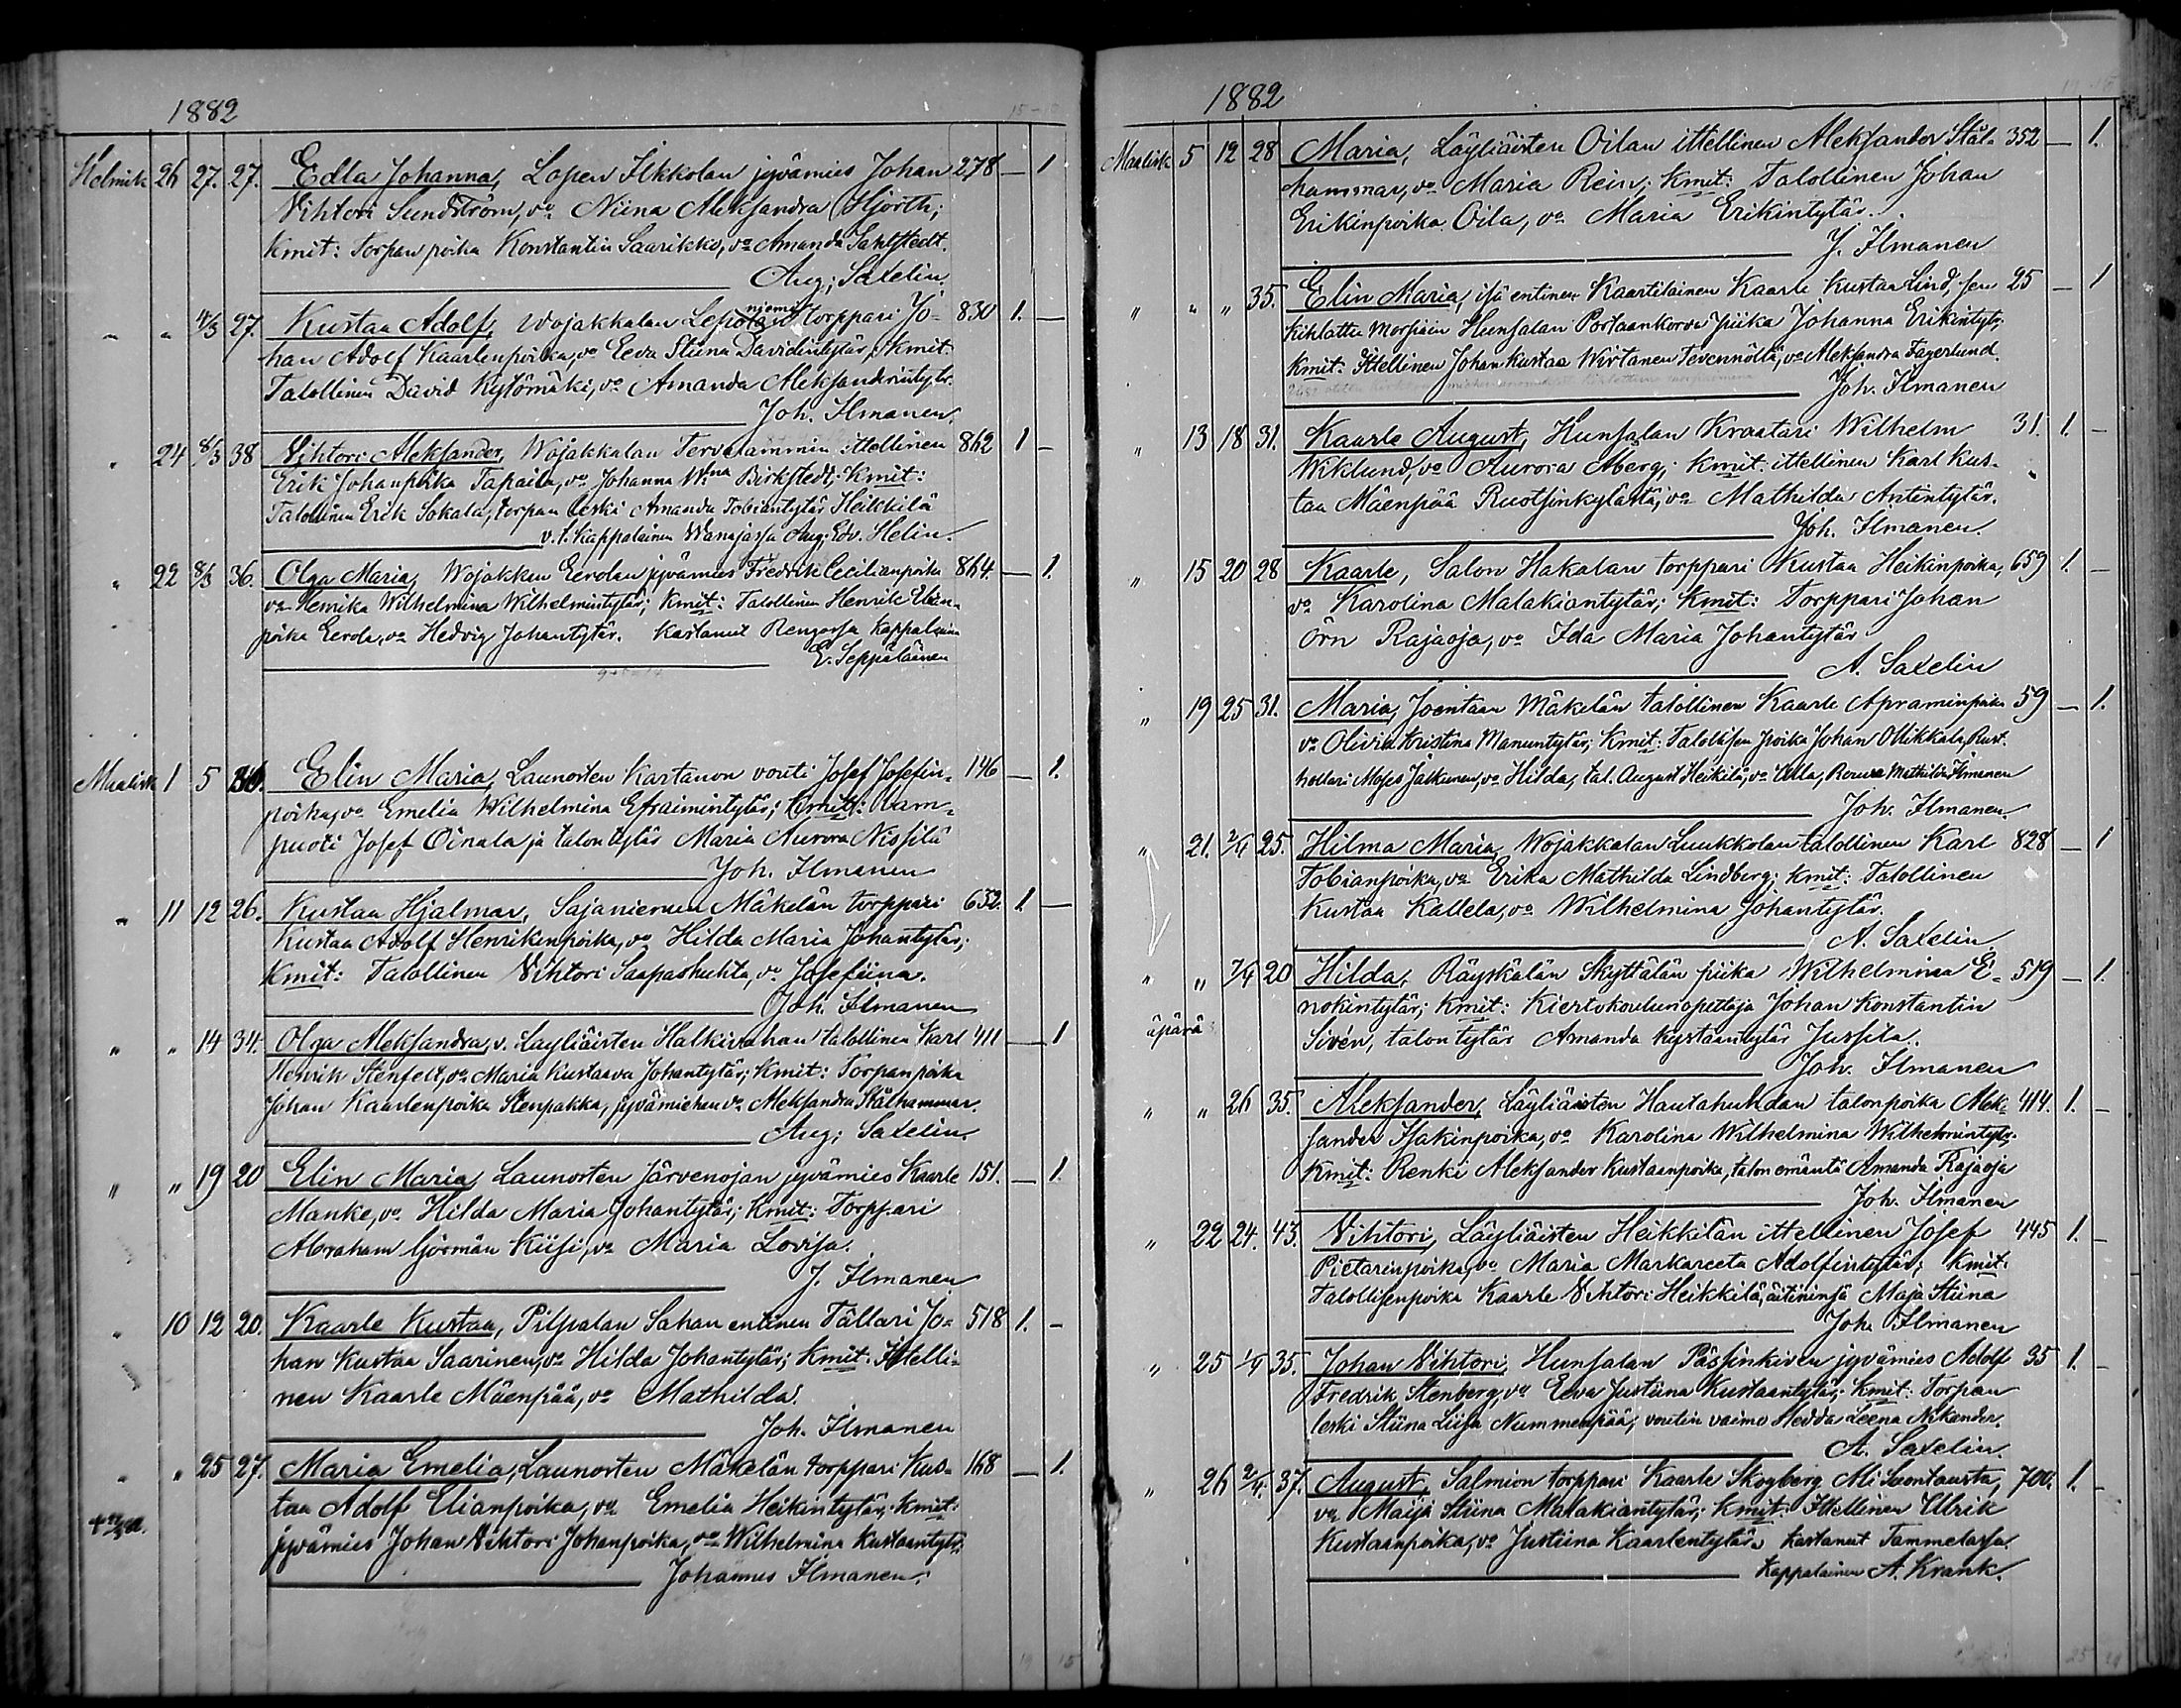 1882
Helmik 26 27. 27. Edla Johanna, Lopen Ilkkolan jyvämies Johan 278 — 1
Vihtori Sundström, vo Niina Aleksandra Hjorth;
Kmit: Torpan poika Konstantin Saarikko, va Amanda Sahlstedt.
Aug; Saxelin.
" " 4/3 27. Kustaa Adolf, Wojakkalan Leponiemi torppari Jo- 830 1. —
han Adolf Kaarlenpoika, vo Eeva Stiina Davidintytär; Kmit:
Talollinen David Kytömäki, vo Amanda Aleksandrintytr.
Joh. Ilmanen.
" 24 8/3 38 Vihtori Aleksander, Wojakkalan Tervalammin ittellinen 862 1 —
Erik Johanpoika Tapaila, vo Johanna Wna Birkstedt; Kmit:
Talollinen Erik Sokala, torpan leski Amanda Tobiantytär Heikkilä
v.t. Kappalainen Wanajassa Aug. Edv. Helin.
" 22 8/3 36. Olga Maria, Wojakkan Eerolan jyvämies Fredrik Cecilianpoika 864. — 1.
va Henrika Wilhelmina Wilhelmintytär; Kmit: Talollinen Henrik Elian-
poika Eerola, va Hedvig Johantytär. Kastanut Rengossa Kappalainen
E. Seppäläinen
Maalisk 1 5 36. Elin Maria, Launosten Kartanon vouti Josef Josefin- 146 — 1.
poika, vo Emelia Wilhelmina Efraimintytär; Kmit: Lam-
puoti Josef Oinala ja talon tytär Maria Aurora Nissilä
Joh. Ilmanen
" 11 12 26. Kustaa Hjalmar, Sajaniemen Mäkelän torppari 632. 1. —
Kustaa Adolf Henrikinpoika, vo Hilda Maria Johantytär;
Kmit: Talollinen Vihtori Saapashuhta, vo Josefiina.
Joh. Ilmanen
" " 14 34. Olga Aleksandra, v. Layliäisten Halkivahan talollinen Karl 411 — 1
Henrik Stenfelt, va Maria Kustaava Johantytär; Kmit: Torpanpoika
Johan Kaarlenpoika Stenpakka, jyvämiehen va Aleksandra Stålhammar.
Aug; Saxelin.
" " 19 20 Elin Maria, Launosten Järvenojan jyvämies Kaarle 151. — 1.
Manke, vo Hilda Maria Johantytär; Kmit: Torppari
Abraham Görmän Kiisi, va Maria Lovisa.
J. Ilmanen
" 10 12 20. Kaarle Kustaa, Pilpalan Sahan entinen Tällari Jo- 518 1. —
han Kustaa Saarinen, va Hilda Johantytär; Kmit: Ittelli-
nen Kaarle Mäenpää, vo Mathilda.
Joh. Ilmanen
" " 25 27. Maria Emelia, Launosten Mäkelän torppari Kus- 168 — 1.
taa Adolf Elianpoika, vo Emelia Heikintytär; Kmit:
jyvämies Johan Vihtori Johanpoika, va Wilhelmina Kustaantytr.
Johannes Ilmanen.
1882
Maalisk 5 12 28 Maria, Läyliäisten Oilan ittellinen Aleksander Stål- 352 — 1.
hammar, vo Maria Rein; Kmit: Talollinen Johan
Erikinpoika Oila, vo Maria Erikintytär.
J. Ilmanen
" " " 35. Elin Maria, isä entinen Kaartilainen Kaarle Kustaa Lind, sen 25 — 1
kihlattu morsiain Hunsalan Portaankorva piika Johanna Erikintytr.
Kmit: Ittellinen Johan Kustaa Wirtanen Tevennöltä, va Aleksandra Fagerlund.
Joh. Ilmanen
" 13 18 31. Kaarle August, Hunsalan Kraatari Wilhelm 31. 1. —
Wiklund, vo Aurora Åberg; Kmit: ittellinen Karl Kus-
taa Mäenpää Rustsinkylästä, va Mathilda Antintytär.
Joh. Ilmanen.
" 15 20 28 Kaarle, Salon Hakalan torppari Kustaa Heikinpoika, 659 1. —
vo Karolina Malakiantytär; Kmit: Torppari Johan
Örn Rajaoja, vo Ida Maria Johantytär
A. Saxelin
" 19 25 31. Maria, Joentaan Mäkelän talollinen Kaarle Apraminpoika 59 — 1.
va Olivia Kristina Manuntytär; Kmit: Talollisen poika Johan Ollikkala, Rust-
hollari Moses Jalkunen, va Hilda, tal. August Heikilä, vo Edla, Rouva Mathilda Ilmanen
Joh. Ilmanen.
" 21. 2/4 25. Hilma Maria, Wojakkalan Luukkolan talollinen Karl 828 — 1
Tobianpoika, va Erika Mathilda Lindberg; Kmit: Talollinen
Kustaa Kallela, vo Wilhelmina Johantytär.
A. Saxelin.
" " 7/4 20 Hilda, Räyskälän Skyttälän piika Wilhelmina E- 519 — 1.
nokintytär; Kmit: Kiertokoulunopettaja Johan Konstantin
äpärä Sivén, talon tytär Amanda Kystaantytär Jussila.
Joh. Ilmanen
" " 26 35. Aleksander, Läyliäisten Hautahuhdan talonpoika Alek- 414. 1. —
sander Isakinpoika, vo Karolina Wilhelmina Wilhelmintytr.
Kmit: Renki Aleksander Kustaanpoika, talon emäntä Amanda Rajaoja
Joh. Ilmanen
" 22 24. 43. Vihtori, Läyliäisten Heikkilän ittellinen Josef 445 1. —
Pietarinpoika, vo Maria Markareeta Adolfintytär; Kmit:
Talollisenpoika Kaarle Vihtori Heikkilä, äitinsä Maja Stiina
Joh. Ilmanen
" 25 1/4 35. Johan Vihtori, Hunsalan Pässinkiven jyvämies Adolf 35 1. —
Fredrik Stenberg, va Eeva Justiina Kustaantytär; Kmit: Torpan
leski Stiina Liisa Nummenpää, voutin vaimo Hedda Leena Nikander.
A. Saxelin.
" 26 2/4. 37. August, Salmion torppari Kaarle Skogberg Ali Suontausta, 700. 1. —
va Maija Stiina Malakiantytär; Kmit: Ittellinen Ulrik
Kustaanpoika, va Justiina Kaarlentytär. Kastanut Tammelassa
Kappalainen A. Krank.